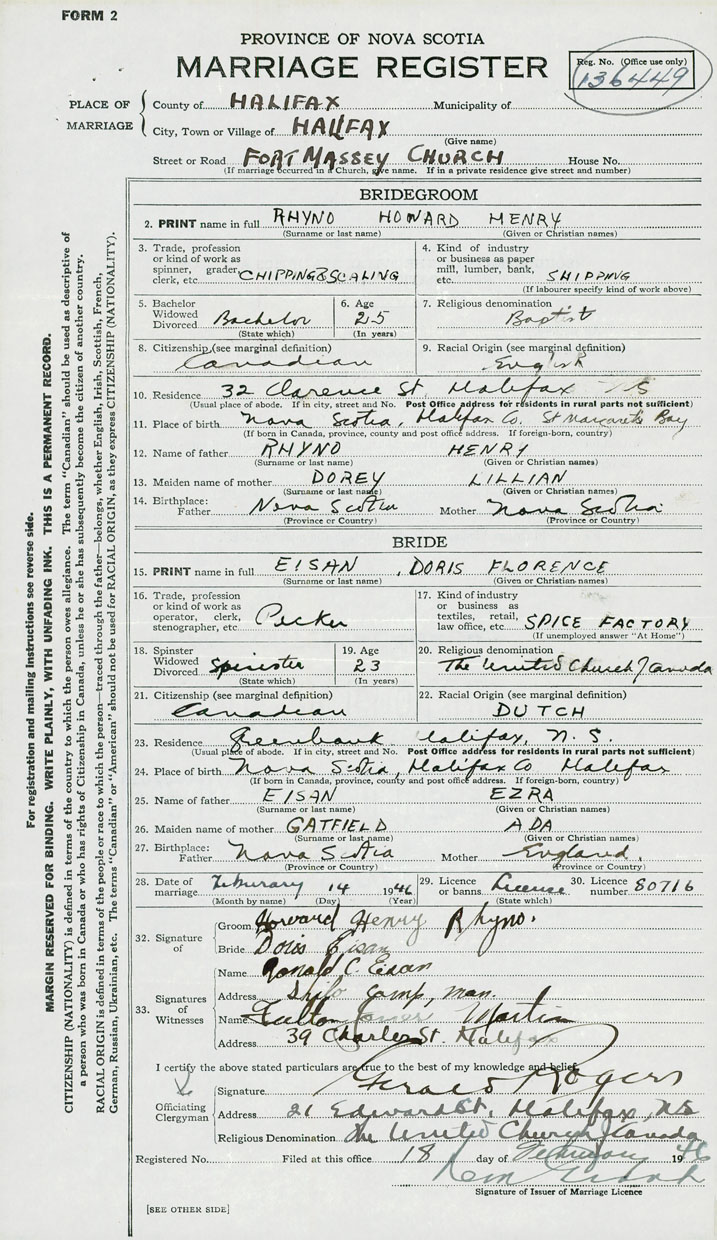 FORM 2
PROVINCE OF NOVA SCOTIA
MARRIAGE REGISTER
Reg. No. (Office use only)
136449
PLACE OF MARRIAGE
County of HALIFAX Municipality of
City, Town or Village of HALIFAX
(Give name)
Street or Road FORT MASSEY CHURCH House No.
(If marriage occurred in a Church, give name. If in a private residence give street and number)
BRIDEGROOM
2. PRINT name in full RHYNO HOWARD HENRY
(Surname or last name) (Given or Christian names)
3. Trade, profession or kind of work as spinner, grader clerk, etc. CHIPPING & SCALING
4. Kind of industry or business as paper mill, lumber, bank, etc. SHIPPING
(If labourer specify kind of work above)
5. Bachelor Widowed Divorced Bachelor
(State which)
6. Age 25
(In years)
7. Religious denomination
Baptist
8. Citizenship (see marginal definition)
Canadian
9. Racial Origin (see marginal definition)
English
10. Residence 32 Clarence St Halifax NS
(Usual place of abode. If in city, street and No. Post Office address for residents in rural parts not sufficient)
11. Place of birth Nova Scotia, Halifax Co. St Margarets Bay
(If born in Canada, province, county and post office address. If foreign-born, country)
12. Name of father RHYNO HENRY
(Surname or last name) (Given or Christian names)
13. Maiden name of mother DOREY LILLIAN
(Surname or last name) (Given or Christian names)
14. Birthplace: Father Nova Scotia Mother Nova Scotia
(Province or Country) (Province or Country)
BRIDE
15. PRINT name in full EISAN, DORIS FLORENCE
(Surname or last name) (Given or Christian names)
16. Trade, profession or kind of work as operator, clerk, stenographer, etc. Packer
17. Kind of industry or business as textiles, retail, law office, etc. SPICE FACTORY
(If unemployed answer "At Home")
18. Spinster Widowed Divorced Spinster
(State which)
19. Age 23
(In years)
20. Religious denomination
The United Church of Canada
21. Citizenship (see marginal definition)
Canadian
22. Racial Origin (see marginal definition)
DUTCH
23. Residence Greenbank Halifax, N. S.
(Usual place of abode. If in city, street and No. Post Office address for residents in rural parts not sufficient)
24. Place of birth Nova Scotia, Halifax Co Halifax
(If born in Canada, province, county and post office address. If foreign-born, country)
25. Name of father EISAN EZRA
(Surname or last name) (Given or Christian names)
26. Maiden name of mother GATFIELD ADA
(Surname or last name) (Given or Christian names)
27. Birthplace: Father Nova Scotia Mother England.
(Province or Country) (Province or Country)
28. Date of marriage February 14 1946
(Month by name) (Day) (Year)
29. Licence or banns License
(State which)
30. Licence number 80716
32. Signature of
Groom Howard Henry Rhyno.
Bride Doris Eisan
33. Signatures of Witnesses
Name Ronald C. Eisan
Address Shilo Camp, Man.
Name Fulton Martin
Address 39 Charles St. Halifax
I certify the above stated particulars are true to the best of my knowledge and belief.
Officiating Clergyman
Signature Gerald Rogers
Address 21 Edward St, Halifax, NS
Religious Denomination The United Church of Canada
Registered No. Filed at this office 18 day of February 1946
Signature of Issuer of Marriage Licence
[SEE OTHER SIDE]
For registration and mailing instructions see reverse side.
MARGIN RESERVED FOR BINDING. WRITE PLAINLY, WITH UNFADING INK. THIS IS A PERMANENT RECORD.
CITIZENSHIP (NATIONALITY) is defined in terms of the country to which the person owes allegiance. The term "Canadian" should be used as descriptive of
a person who was born in Canada or who has rights of Citizenship in Canada, unless he or she has subsequently become the citizen of another country.
RACIAL ORIGIN is defined in terms of the people or race to which the person—traced through the father—belongs, whether English, Irish, Scottish, French,
German, Russian, Ukrainian, etc. The terms "Canadian" or "American" should not be used for RACIAL ORIGIN, as they express CITIZENSHIP (NATIONALITY).